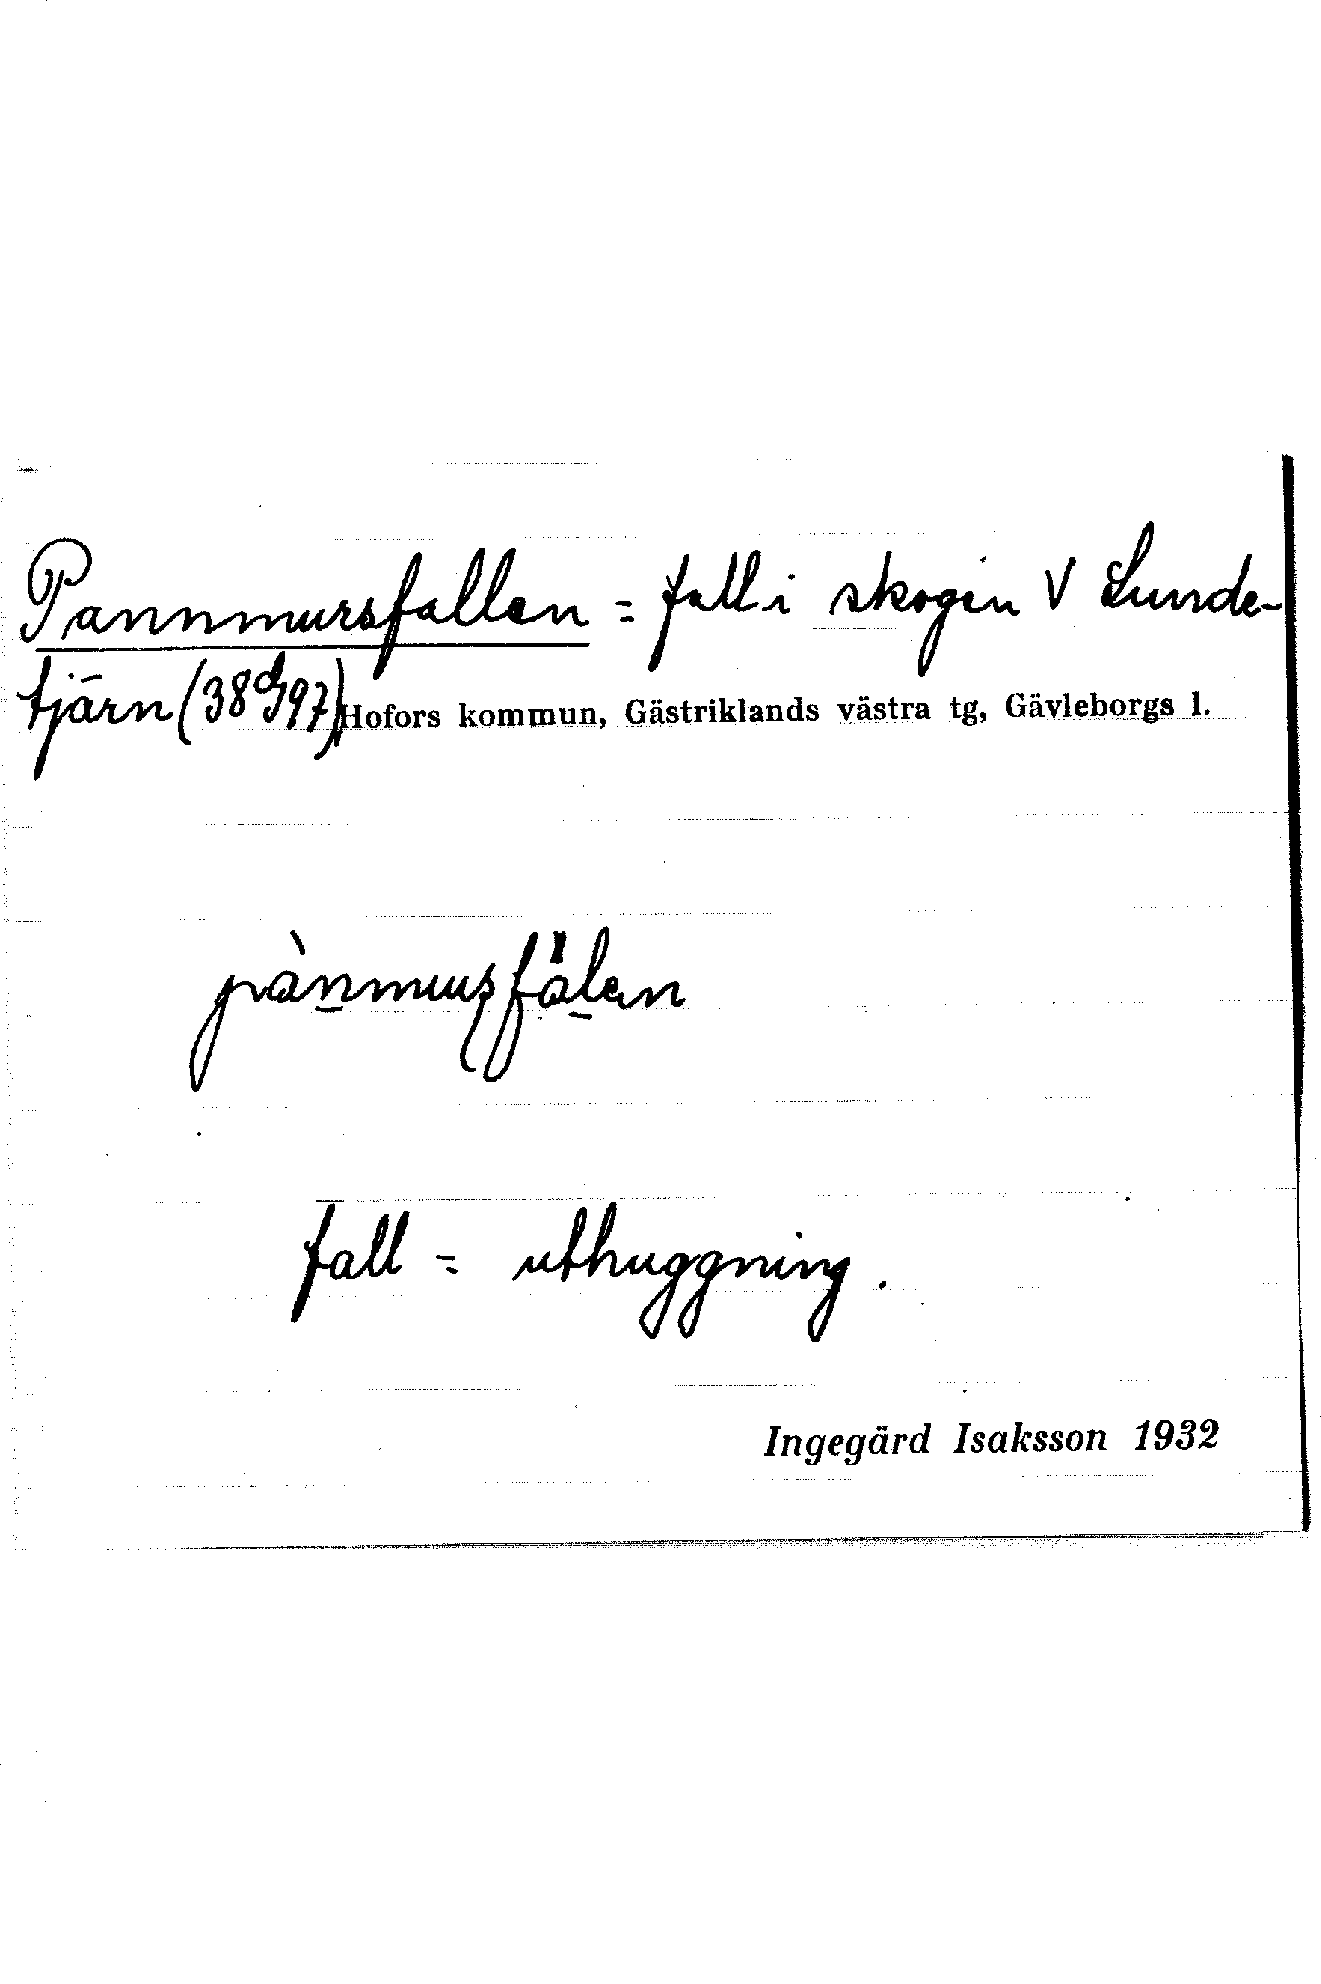 Pannmursfallen = fall i skogen V Lunde-
tjärn (38 d 97) Hofors kommun, Gästriklands västra tg, Gävleborgs l.
fall = uthuggning.
Ingegärd Isaksson 1932